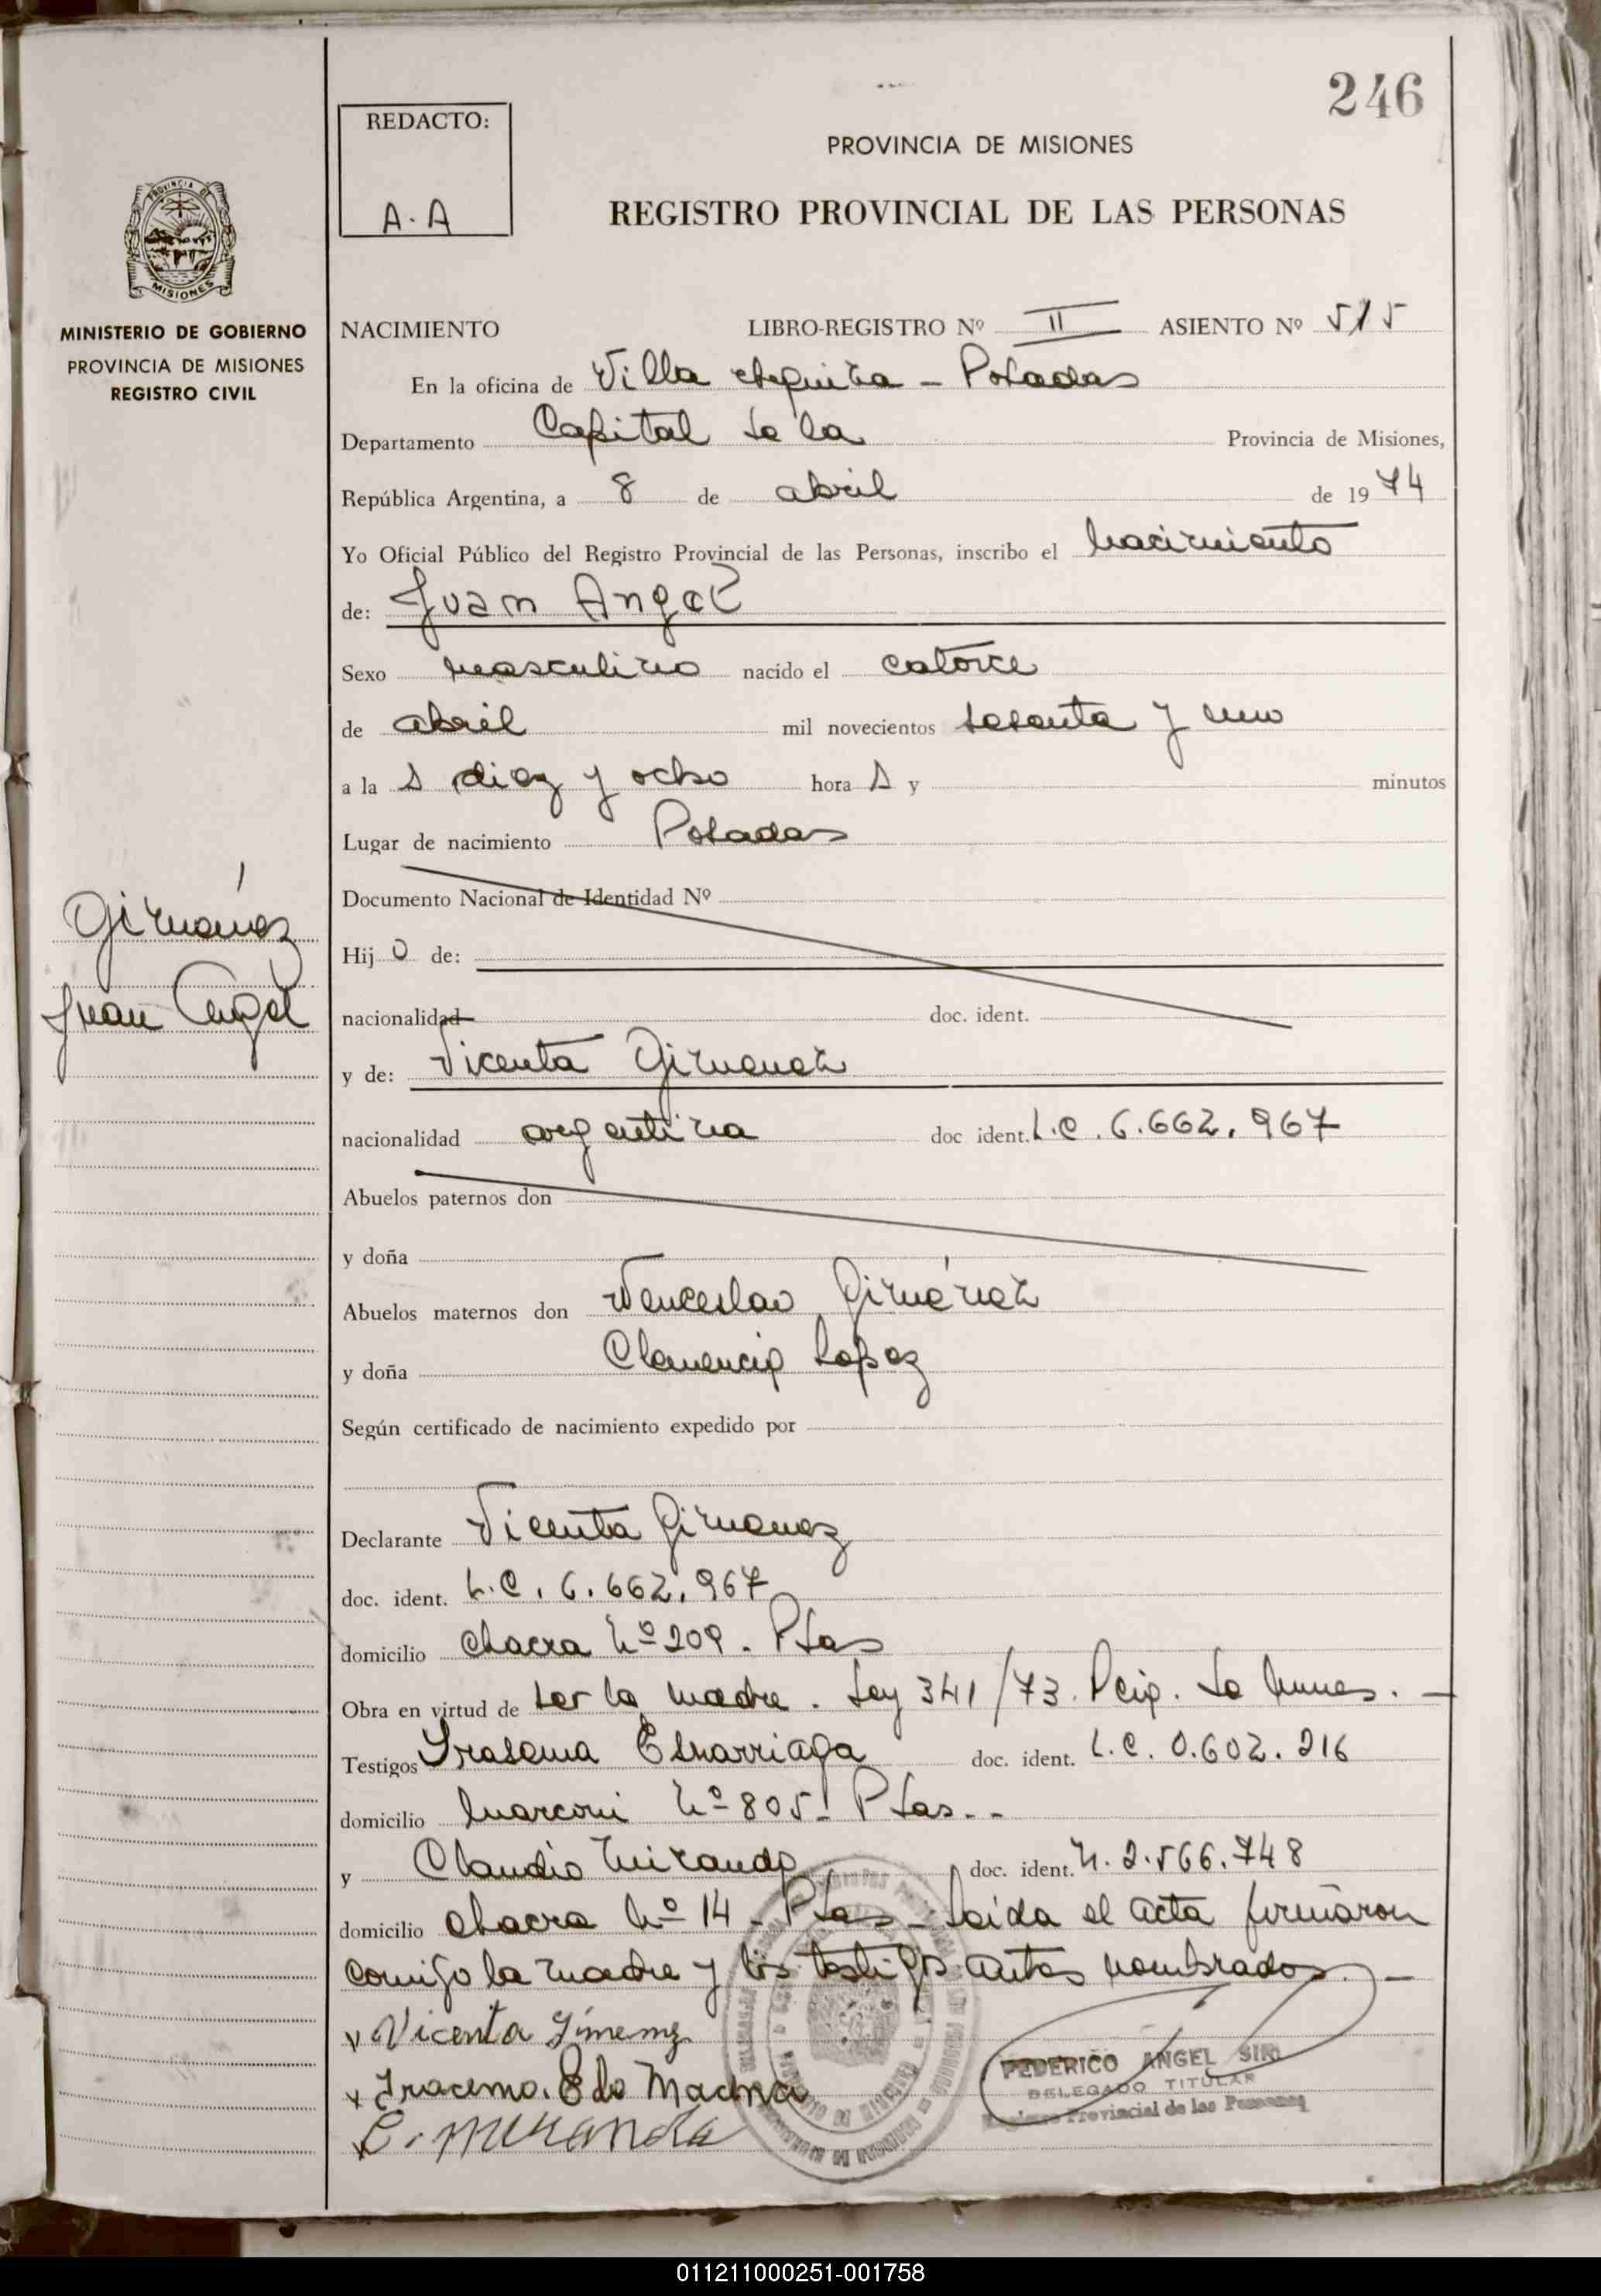 246
REDACTO:
A.A
PROVINCIA DE MISIONES
REGISTRO PROVINCIAL DE LAS PERSONAS
PROVINCIA DE
MISIONES
MINISTERIO DE GOBIERNO
PROVINCIA DE MISIONES
REGISTRO CIVIL
NACIMIENTO LIBRO-REGISTRO Nº II ASIENTO Nº 515
En la oficina de Villa Urquiza - Posadas
Departamento Capital de la Provincia de Misiones,
República Argentina, a 8 de abril de 1974
Yo Oficial Público del Registro Provincial de las Personas, inscribo el nacimiento
de: Juan Angel
Sexo masculino nacido el catorce
de abril mil novecientos sesenta y uno
a la s diez y ocho hora s y minutos
Lugar de nacimiento Posadas
Documento Nacional de Identidad Nº
Giménez
Juan Angel
Hij o de:
nacionalidad doc. ident.
y de: Vicenta Gimenez
nacionalidad argentina doc ident. L.C. 6.662.967
Abuelos paternos don
y doña
Abuelos maternos don Wenceslao Giménez
y doña Clemencia Lopez
Según certificado de nacimiento expedido por
Declarante Vicenta Gimenez
doc. ident. L.C. 6.662.967
domicilio chacra Nº 209. Pdas
Obra en virtud de ser la madre. Ley 341/73. Pcia. de Mnes. -
Testigos Irasema doc. ident. L.C. 0.602.216
domicilio Marconi Nº 805. Pdas. -
y Claudio Miranda doc. ident. M. 2.566.748
domicilio chacra Nº 14 - Pdas - Leida el acta firmaron
comigo la madre y los testigos antes nombrados. -
Vicenta Jimenez
Iracema. E de Machka
C. Miranda
FEDERICO ANGEL SIRI
DELEGADO TITULAR
Registro Provincial de las Personas
011211000251-001758